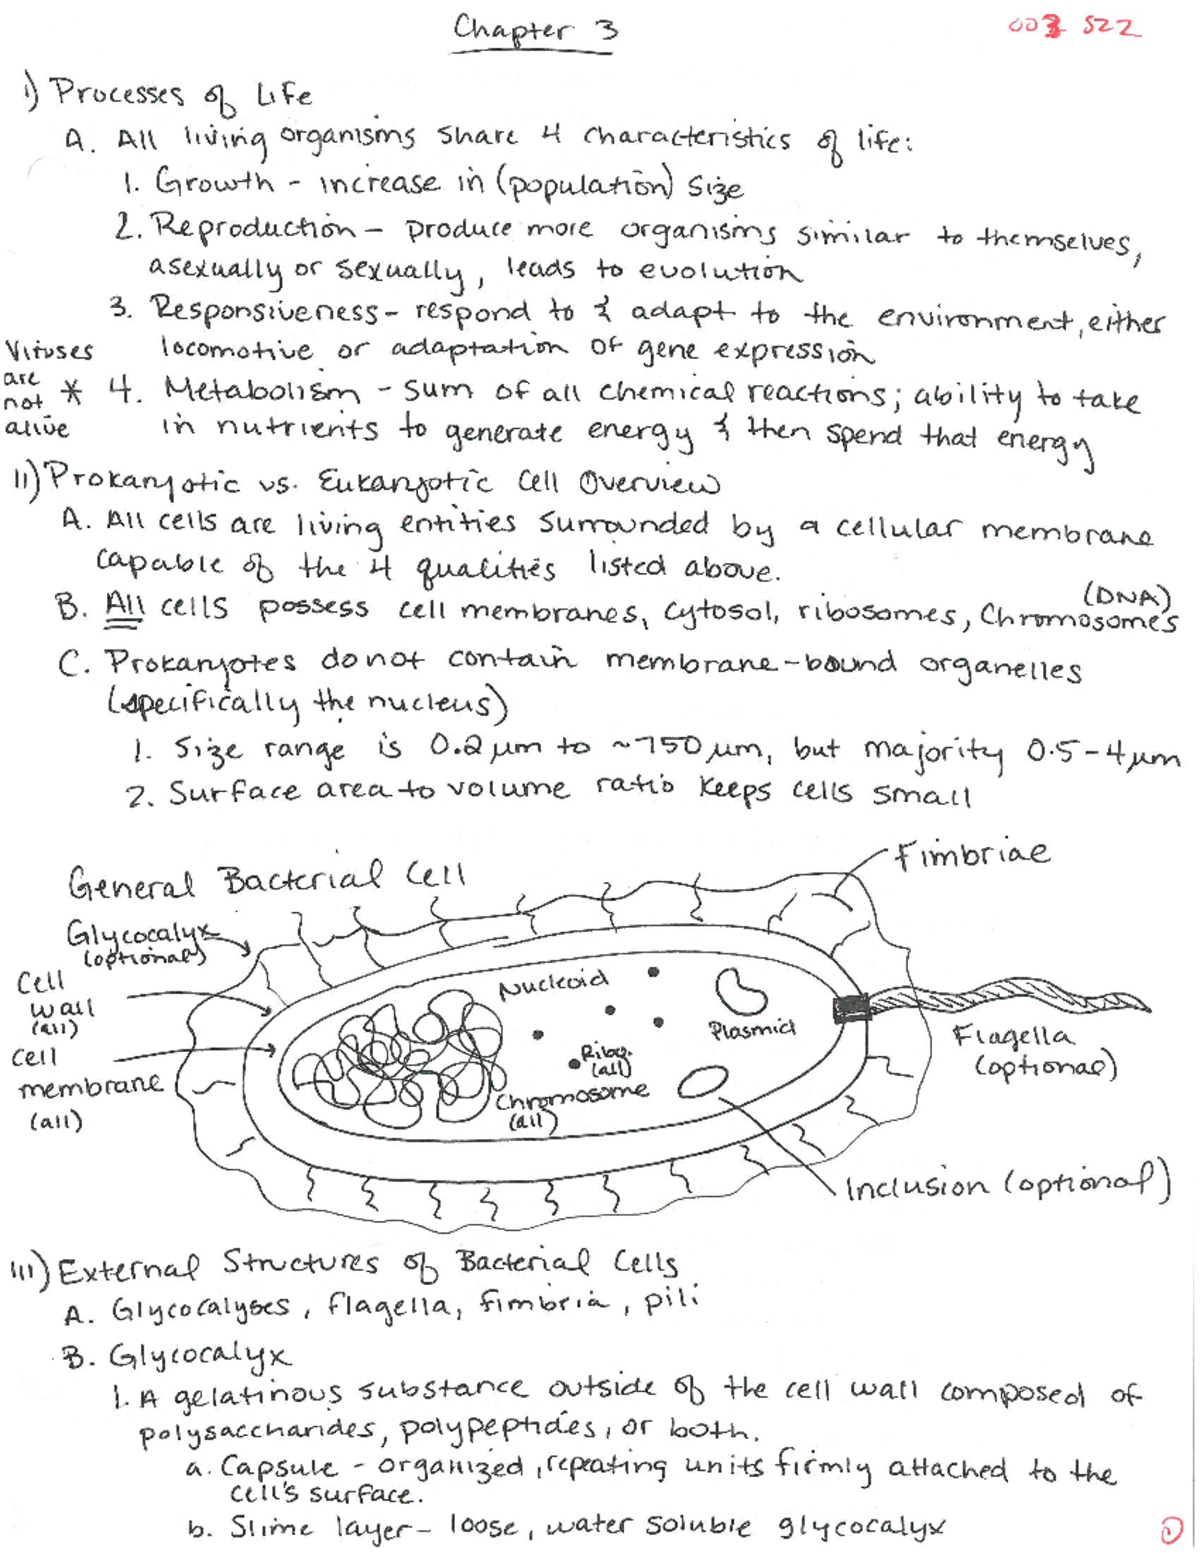 Chapter 3
003 522
I) Processes of Life
A. All living organisms share 4 characteristics of life:
1. Growth - increase in (population) size
2. Reproduction - produce more organisms similar to themselves,
asexually or sexually, leads to evolution
3. Responsiveness - respond to & adapt to the environment, either
locomotive or adaptation of gene expression
Viruses
are
not
alive
* 4. Metabolism - sum of all chemical reactions; ability to take
in nutrients to generate energy & then spend that energy
II) Prokaryotic vs. Eukaryotic Cell Overview
A. All cells are living entities surrounded by a cellular membrane
capable of the 4 qualities listed above.
B. All cells possess cell membranes, cytosol, ribosomes, Chromosomes
(DNA)
C. Prokaryotes do not contain membrane-bound organelles
(specifically the nucleus)
1. Size range is 0.2 µm to ~750 µm, but majority 0.5-4 µm
2. Surface area to volume ratio keeps cells small
General Bacterial Cell
Fimbriae
Glycocalyx
(optional)
Cell
wall
(all)
Cell
membrane
(all)
Nucleoid
Plasmid
Ribo.
(all)
Chromosome
(all)
Flagella
(optional)
Inclusion (optional)
III) External Structures of Bacterial Cells
A. Glycocalyses, flagella, fimbria, pili
B. Glycocalyx
1. A gelatinous substance outside of the cell wall composed of
polysaccharides, polypeptides, or both.
a. Capsule - organized, repeating units firmly attached to the
cell's surface.
b. Slime layer - loose, water soluble glycocalyx
1